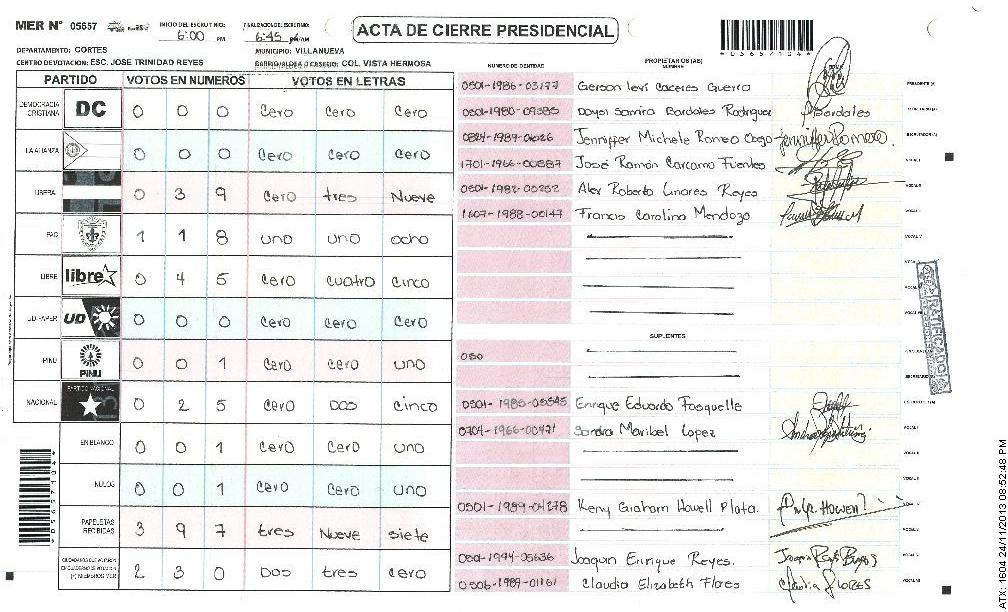 MER N° 05657
INICIO DEL ESCRUTINIO: 6:00 PM
FINALIZACION DEL ESCRUTINIO: 6:45 PM
ACTA DE CIERRE PRESIDENCIAL
*05657104*
DEPARTAMENTO: CORTES
MUNICIPIO: VILLANUEVA
CENTRO DE VOTACION: ESC. JOSE TRINIDAD REYES
BARRIO/ALDEA O CASERIO: COL. VISTA HERMOSA
PARTIDO VOTOS EN NUMEROS VOTOS EN LETRAS
DEMOCRACIA CRISTIANA DC 0 0 0 Cero Cero Cero
LA ALIANZA 0 0 0 Cero Cero Cero
LIBERAL 0 3 9 Cero tres Nueve
PAC 1 1 8 uno uno ocho
LIBRE libre 0 4 5 Cero cuatro cinco
UD-FAPER UD 0 0 0 Cero Cero Cero
PINU PINU 0 0 1 Cero Cero uno
NACIONAL PARTIDO NACIONAL 0 2 5 Cero Dos cinco
EN BLANCO 0 0 1 Cero Cero uno
NULOS 0 0 1 Cero Cero uno
PAPELETAS RECIBIDAS 3 9 7 tres Nueve siete
(+) MIEMBROS MER 2 3 0 Dos tres Cero
NUMERO DE IDENTIDAD
PROPIETARIOS (AS)
NOMBRE
0501-1986-03177 Gerson Levi Caceres Guerra PRESIDENTE (A)
Daysi Samira Bardales Rodriguez Bardales SECRETARIO (A)
0824-1989-01026 Jenniffer Michele Romeo Jenniffer Romero ESCRUTADOR (A)
1701-1966-00887 José Ramón Carcamo Fuentes VOCAL I
0501-1982-05252 Alex Roberto Linares Reyes VOCAL II
1607-1988-00147 Francis Carolina Mendoza
VOCAL IV
SUPLENTES
050
Enrique Eduardo Fasquelle
0704-1966-00471 Sandra Maribel Lopez VOCAL I
0501-1989-01278 Keny Graham Howell Plata. Howell
0501-1994-05636 Joaquin Enrique Reyes.
0506-1989-01161 Claudia Elizabeth Flores Claudia Flores
RATIFICADO
*05657104*
ATX: 1604 24/11/2013 08:52:48 PM